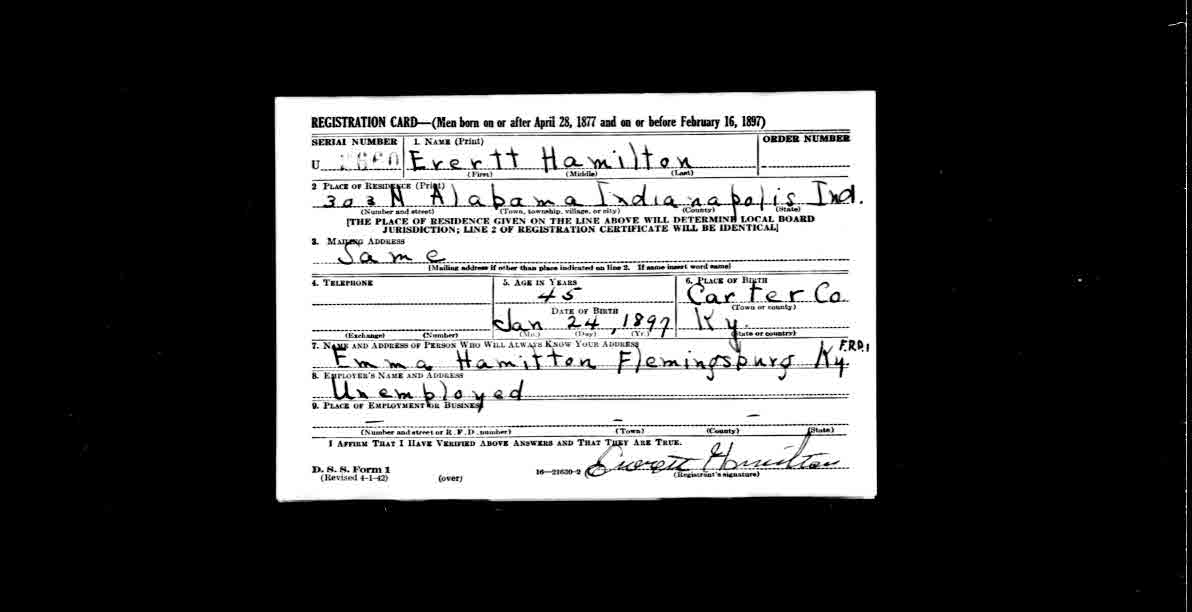 REGISTRATION CARD—(Men born on or after April 28, 1877 and on or before February 16, 1897)
SERIAL NUMBER 1. NAME (Print) ORDER NUMBER
U Evertt Hamilton
(First) (Middle) (Last)
2 PLACE OF RESIDENCE (Print)
303 N Alabama Indianapolis Ind.
(Number and street) (Town, township, village, or city) (County) (State)
[THE PLACE OF RESIDENCE GIVEN ON THE LINE ABOVE WILL DETERMINE LOCAL BOARD
JURISDICTION; LINE 2 OF REGISTRATION CERTIFICATE WILL BE IDENTICAL]
3. MAILING ADDRESS
Same
[Mailing address if other than place indicated on line 2. If same insert word same]
4. TELEPHONE 5. AGE IN YEARS 6. PLACE OF BIRTH
45 Carter Co.
DATE OF BIRTH (Town or county)
Jan 24, 1897 Ky.
(Exchange) (Number) (Mo.) (Day) (Yr.) (State or country)
7. NAME AND ADDRESS OF PERSON WHO WILL ALWAYS KNOW YOUR ADDRESS
Emma Hamitton Flemingsburg Ky.
8. EMPLOYER'S NAME AND ADDRESS
Unemployed
9. PLACE OF EMPLOYMENT OR BUSINESS
— — —
(Number and street or R. F. D. number) (Town) (County) (State)
I AFFIRM THAT I HAVE VERIFIED ABOVE ANSWERS AND THAT THEY ARE TRUE.
D. S. S. Form 1 16—21630-2 Everett Hamilton
(Revised 4-1-42) (over) (Registrant's signature)